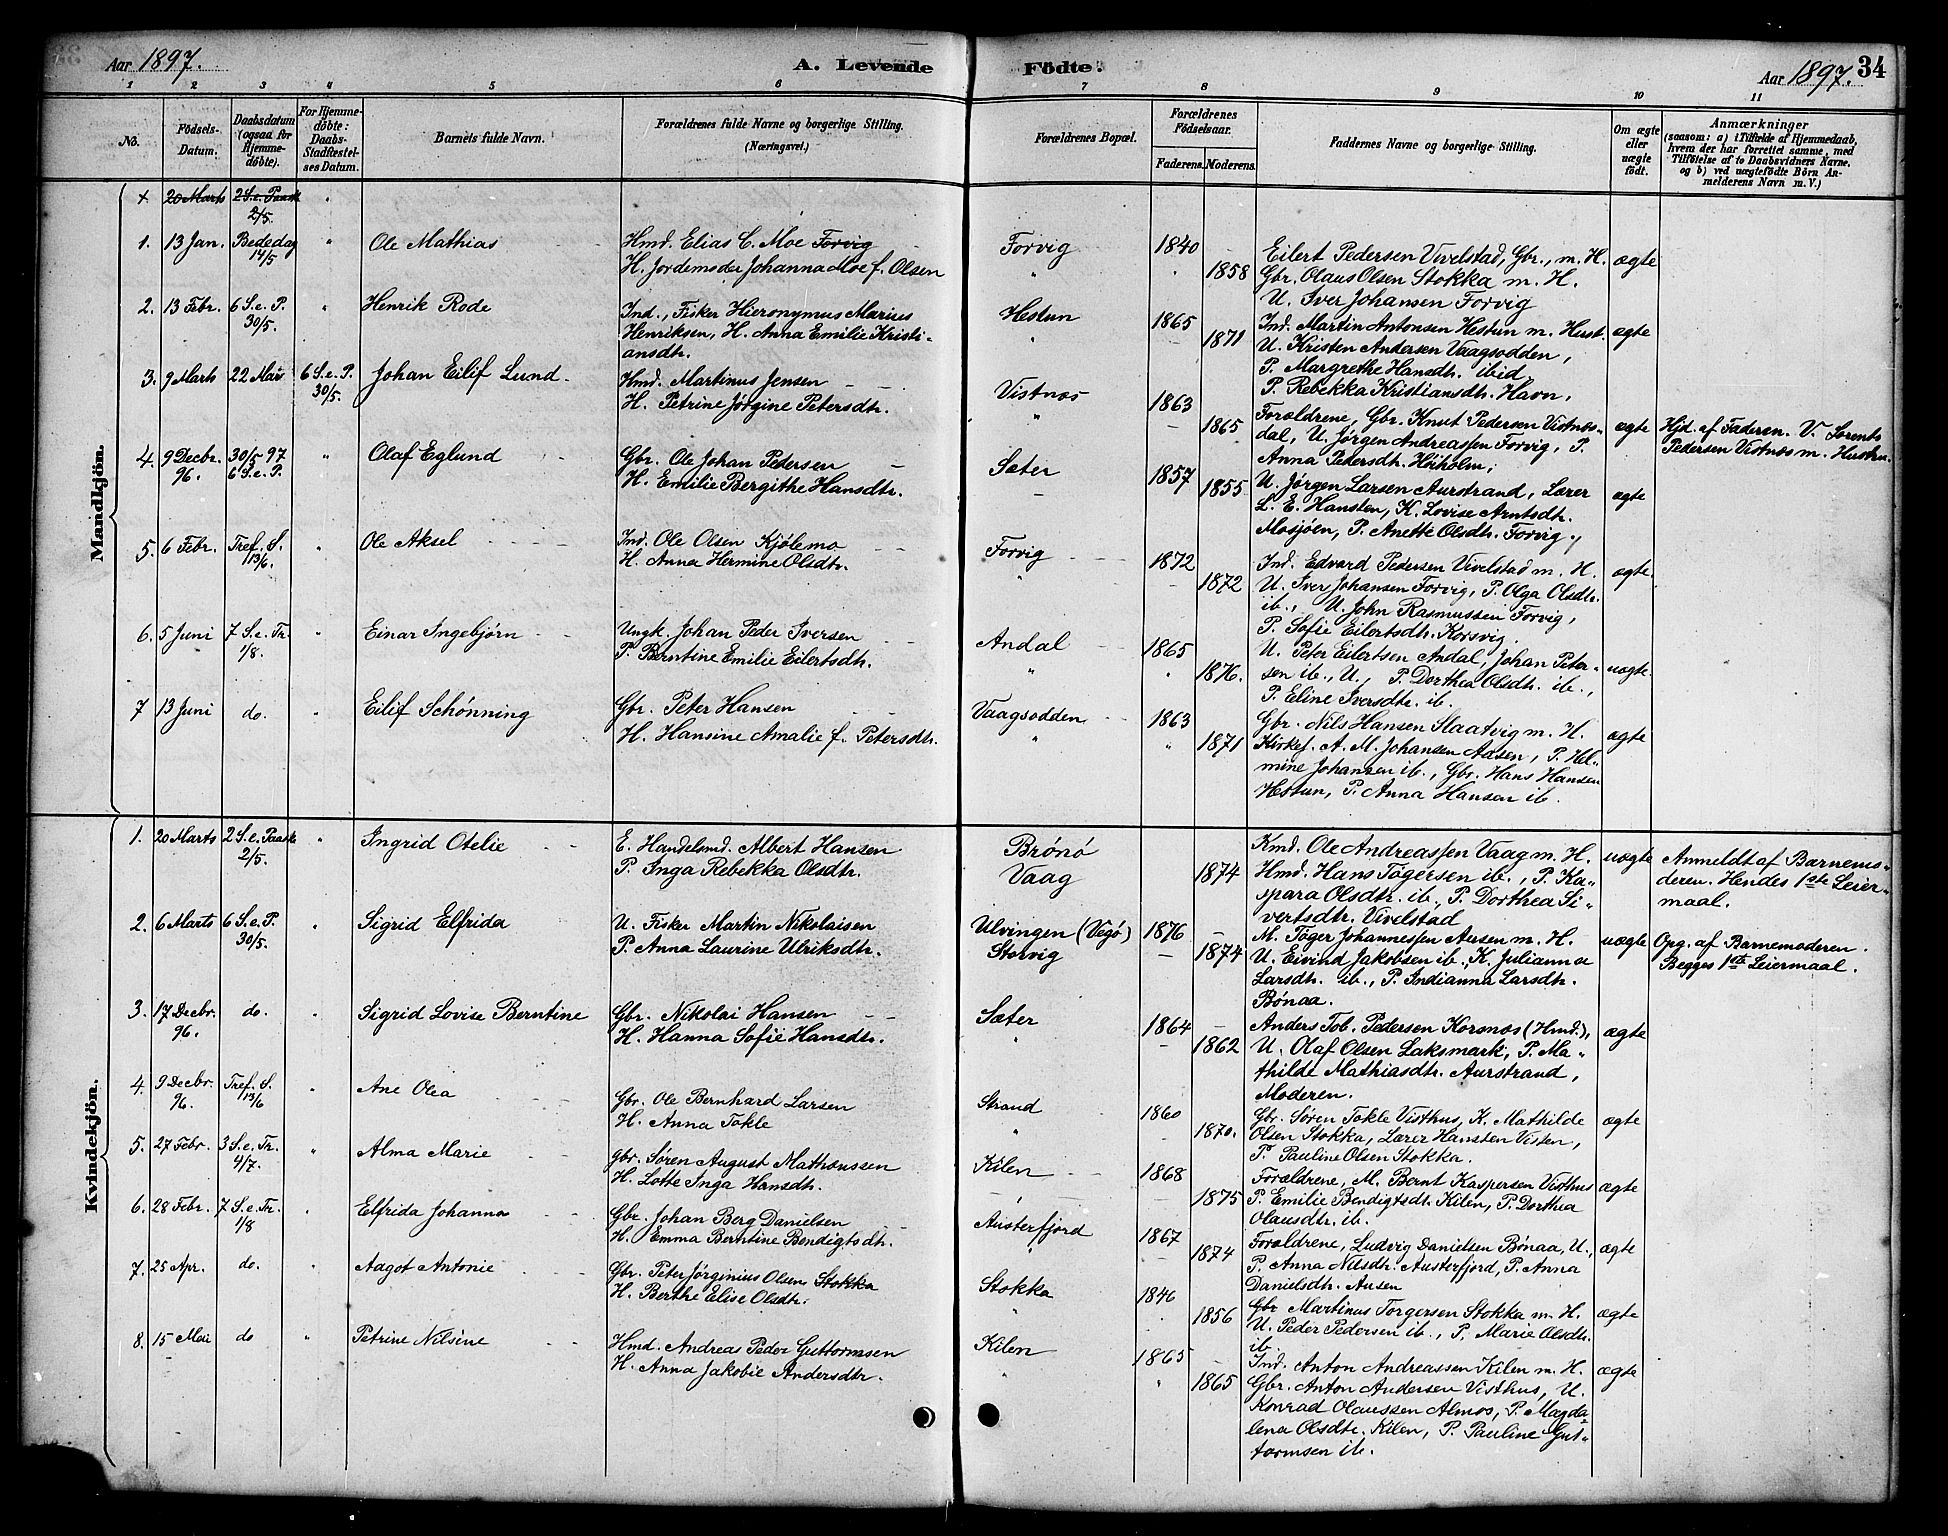 Aar 1897.
A. Levende
Födte.
Aar 1897. 34
1 2 3 4 5 6 7 8 9 10 11
No.
Födsels-
Datum.
Daabsdatum
(ogsaa for
Hjemme-
döbte).
For Hjemme-
döbte:
Daabs-
Stadfæstel-
ses Datum.
Barnets fulde Navn.
Forældrenes fulde Navne og borgerlige Stilling.
(Næringsvei.)
Forældrenes Bopæl.
Forældrenes
Födselsaar.
Faderens. Moderens.
Faddernes Navne og borgerlige Stilling.
Om ægte
eller
uægte
födt.
Anmærkninger
(saasom: a) i Tilfælde af Hjemmedaab,
hvem der har forrettet samme, med
Tilföielse af to Daabsvidners Navne,
og b) ved uægtefödte Börn An-
melderens Navn m. V.)
Mandkjön.
x 20 Marts 2 S. e. Paask
2/5. "
1. 13 Jan. Bededag
14/5 " Ole Mathias
Hmd. Elias C. Moe Forvig
H. Jordemoder Johanna Moe f. Olsen
Forvig 1840 1858
Eilert Pedersen Vivelstad, Gbr., m. H.
Gbr. Olaus Olsen Stokka m. H.
U. Iver Johansen Forvig
ægte
2. 13 Febr. 6 S. e. P.
30/5. " Henrik Rode
Ind., Fisker Hieronymus Marius
Henriksen, H. Anna Emilie Kristi-
ansdtr.
Hestun 1865 1871
Ind. Martin Antonsen Hestun m. Hust.
U. Kristen Andersen Vaagsodden,
P. Margrethe Hansdtr. ibid
P. Rebekka Kristiansdtr. Havn,
ægte
3. 9 Marts 22 Mars 6 S. e. P.
30/5. Johan Eilif Lund.
Hmd. Martinus Jensen
H. Petrine Jørgine Petersdtr.
Vistnæs 1863 1865
Forældrene, Gbr. Knut Pedersen Vistnæs-
dal, U. Jørgen Andreassen Forvig, P.
Anna Pedersdtr. Høiholm;
ægte
Hjd. af Faderen. V. Lorents
Pedersen Vistnæs m. Hustru.
4. 9 Decbr.
96. 30/5 97
6 S. e. P. " Olaf Eglund
Gbr. Ole Johan Pedersen
H. Emilie Bergithe Hansdtr.
Sæter 1857 1855
U. Jørgen Larsen Aurstrand, Lærer
L. E. Hansten, K. Lovise Arntsdtr.
Mosjøen, P. Anette Olsdtr. Forvig.,
ægte
5. 6 Febr. Tref. S.
13/6. " Ole Aksel
Ind. Ole Olsen Kjølemo
H. Anna Hermine Olsdtr.
Forvig 1872 1872
Ind. Edvard Pedersen Vivelstad m. H.
U. Iver Johansen Forvig, P. Olga Olsdtr.
ib., U. John Rasmussen Forvig,
P. Sofie Eilertsdtr. Korsvig.
ægte
6. 5 Juni 7 S. e. Tr.
1/8. " Einar Ingebjørn
Ungk. Johan Peder Iversen
P. Berntine Emilie Eilertsdtr.
Andal 1865 1876.
U. Peter Eilertsen Andal, Johan Peter-
sen ib., U., P. Dorthea Olsdtr. ib.,
P. Eline Iversdtr. ib.
uægte.
7 13 Juni do. " Eilif Schønning
Gbr. Peter Hansen
H. Hansine Amalie f. Petersdtr.
Vaagsodden 1863 1871
Gbr. Nils Hansen Slaatvig m. H.
Kirkes. A. M. Johansen Aasen, P. Hel-
mine Johansen ib., Gbr. Hans Hansen
Hestun, P. Anna Hansen ib.
ægte
Kvindekjön.
1. 20 Marts 2 S. e. Paask
2/5. " Ingrid Otelie
E. Handelsmd. Albert Hansen
P. Inga Rebekka Olsdtr.
Brønø
Vaag 1874
Kmd. Ole Andreassen Vaag m. H.
Hmd. Hans Tøgersen ib., P. Ka-
spara Olsdtr. ib., P. Dorthea Si-
vertsdtr. Vivelstad
uægte
Anmeldt af Barnemo-
deren. Hendes 1ste Leier-
maal.
2. 6 Marts 6 S. e. P.
30/5. " Sigrid Elfrida
U. Fisker Martin Nikolaisen
P. Anna Laurine Ulriksdtr.
Ulvingen (Vegø)
Storvig 1876 1874
M. Tøger Johannessen Ausen m. H.
U. Eivind Jakobsen ib., K. Julianna
Larsdtr. ib., P. Indianna Larsdtr.
Bønaa.
uægte
Opg. af Barnemoderen.
Begges 1ste Leiermaal.
3. 17 Decbr.
96. do. " Sigrid Lovise Berntine
Gbr. Nikolai Hansen
H. Hanna Sofie Hansdtr.
Sæter 1864 1862
Anders Tob. Pedersen Korsnæs (Hmd.),
U. Olaf Olsen Laksmark, P. Ma-
thilde Mathiasdtr. Aurstrand,
Moderen.
ægte
4. 9 Decbr.
96. Tref. S.
13/6 " Ane Olea
Gbr. Ole Bernhard Larsen
H. Anna Tøkle
Strand 1860 1870.
Gbr. Søren Tøkle Visthus, K. Mathilde
Olsen Stokka, Lærer Hansten Visten,
P. Pauline Olsen Stokka.
ægte
5. 27 Febr. 3 S. e. Tr.
4/7. " Alma Marie
Gbr. Søren August Mathæussen
H. Lotte Inga Hansdtr.
Kilen 1868 1875
Forældrene, M. Bernt Kaspersen Visthus
P. Emilie Bendigtsdtr. Kilen, P. Dorthea
Olausdtr. ib.
ægte
6. 28 Febr. 7 S. e. Tr.
1/8 " Elfrida Johanna
Gbr. Johan Berg Danielsen
H. Emma Berntine Bendigtsdtr.
Austerfjord 1867 1874
Forældrene, Ludvig Danielsen Bønaa, U.,
P. Anna Nilsdtr. Austerfjord, P. Anna
Danielsdtr. Ausen
ægte
7. 25 Apr. do. " Aagot Antonie
Gbr. Peter Jørginius Olsen Stokka
H. Berthe Elise Olsdtr.
Stokka 1846 1856
Gbr Martinus Torgersen Stokka m. H.
U. Peder Pedersen ib., P. Marie Olsdtr.
ib.
ægte
8. 15 Mai do " Petrine Nilsine
Hmd. Andreas Peder Guttormsen
H. Anna Jakobie Andersdtr.
Kilen 1865 1865
Ind. Anton Andreassen Kilen m. H.
Gbr. Anton Andersen Visthus, U.
Konrad Olaussen Almos, P. Magda-
lena Olsdtr. Kilen, P. Pauline Gut-
tormsen ib.
ægte